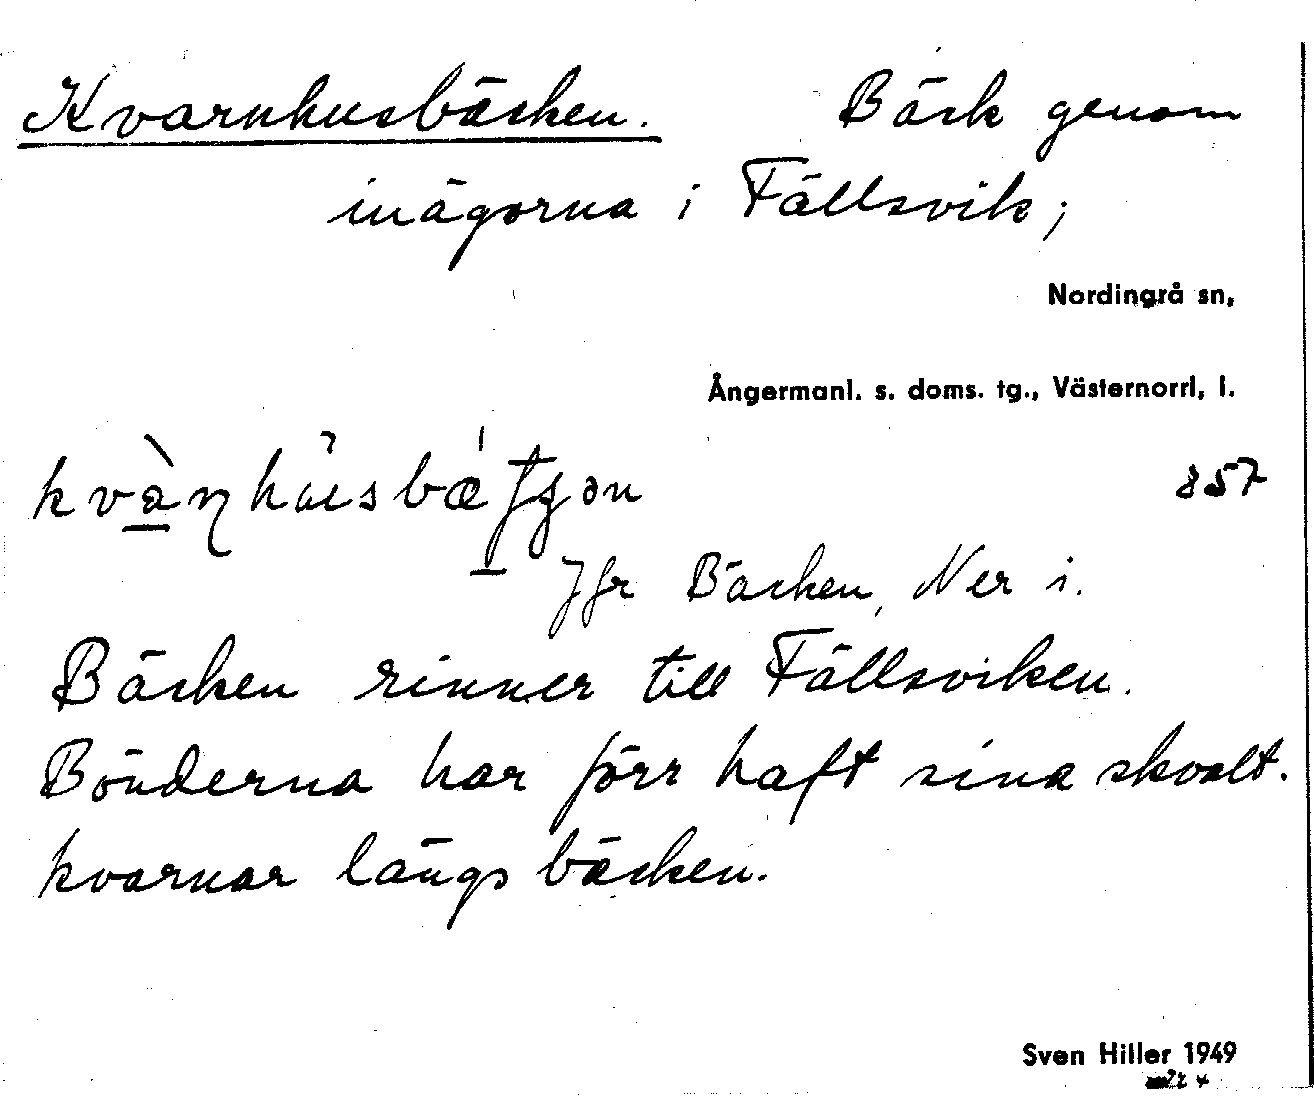 Kvarnhusbäcken. Bäck genom
inägorna i Fällsvik;
Nordingrå sn,
Ångermanl. s. doms. tg., Västernorrl. l.
857
Jfr Bäcken, Ner i.
Bäcken rinner till Fällsviken.
Bönderna har förr haft sina skvalt-
kvarnar längs bäcken.
Sven Hiller 1949